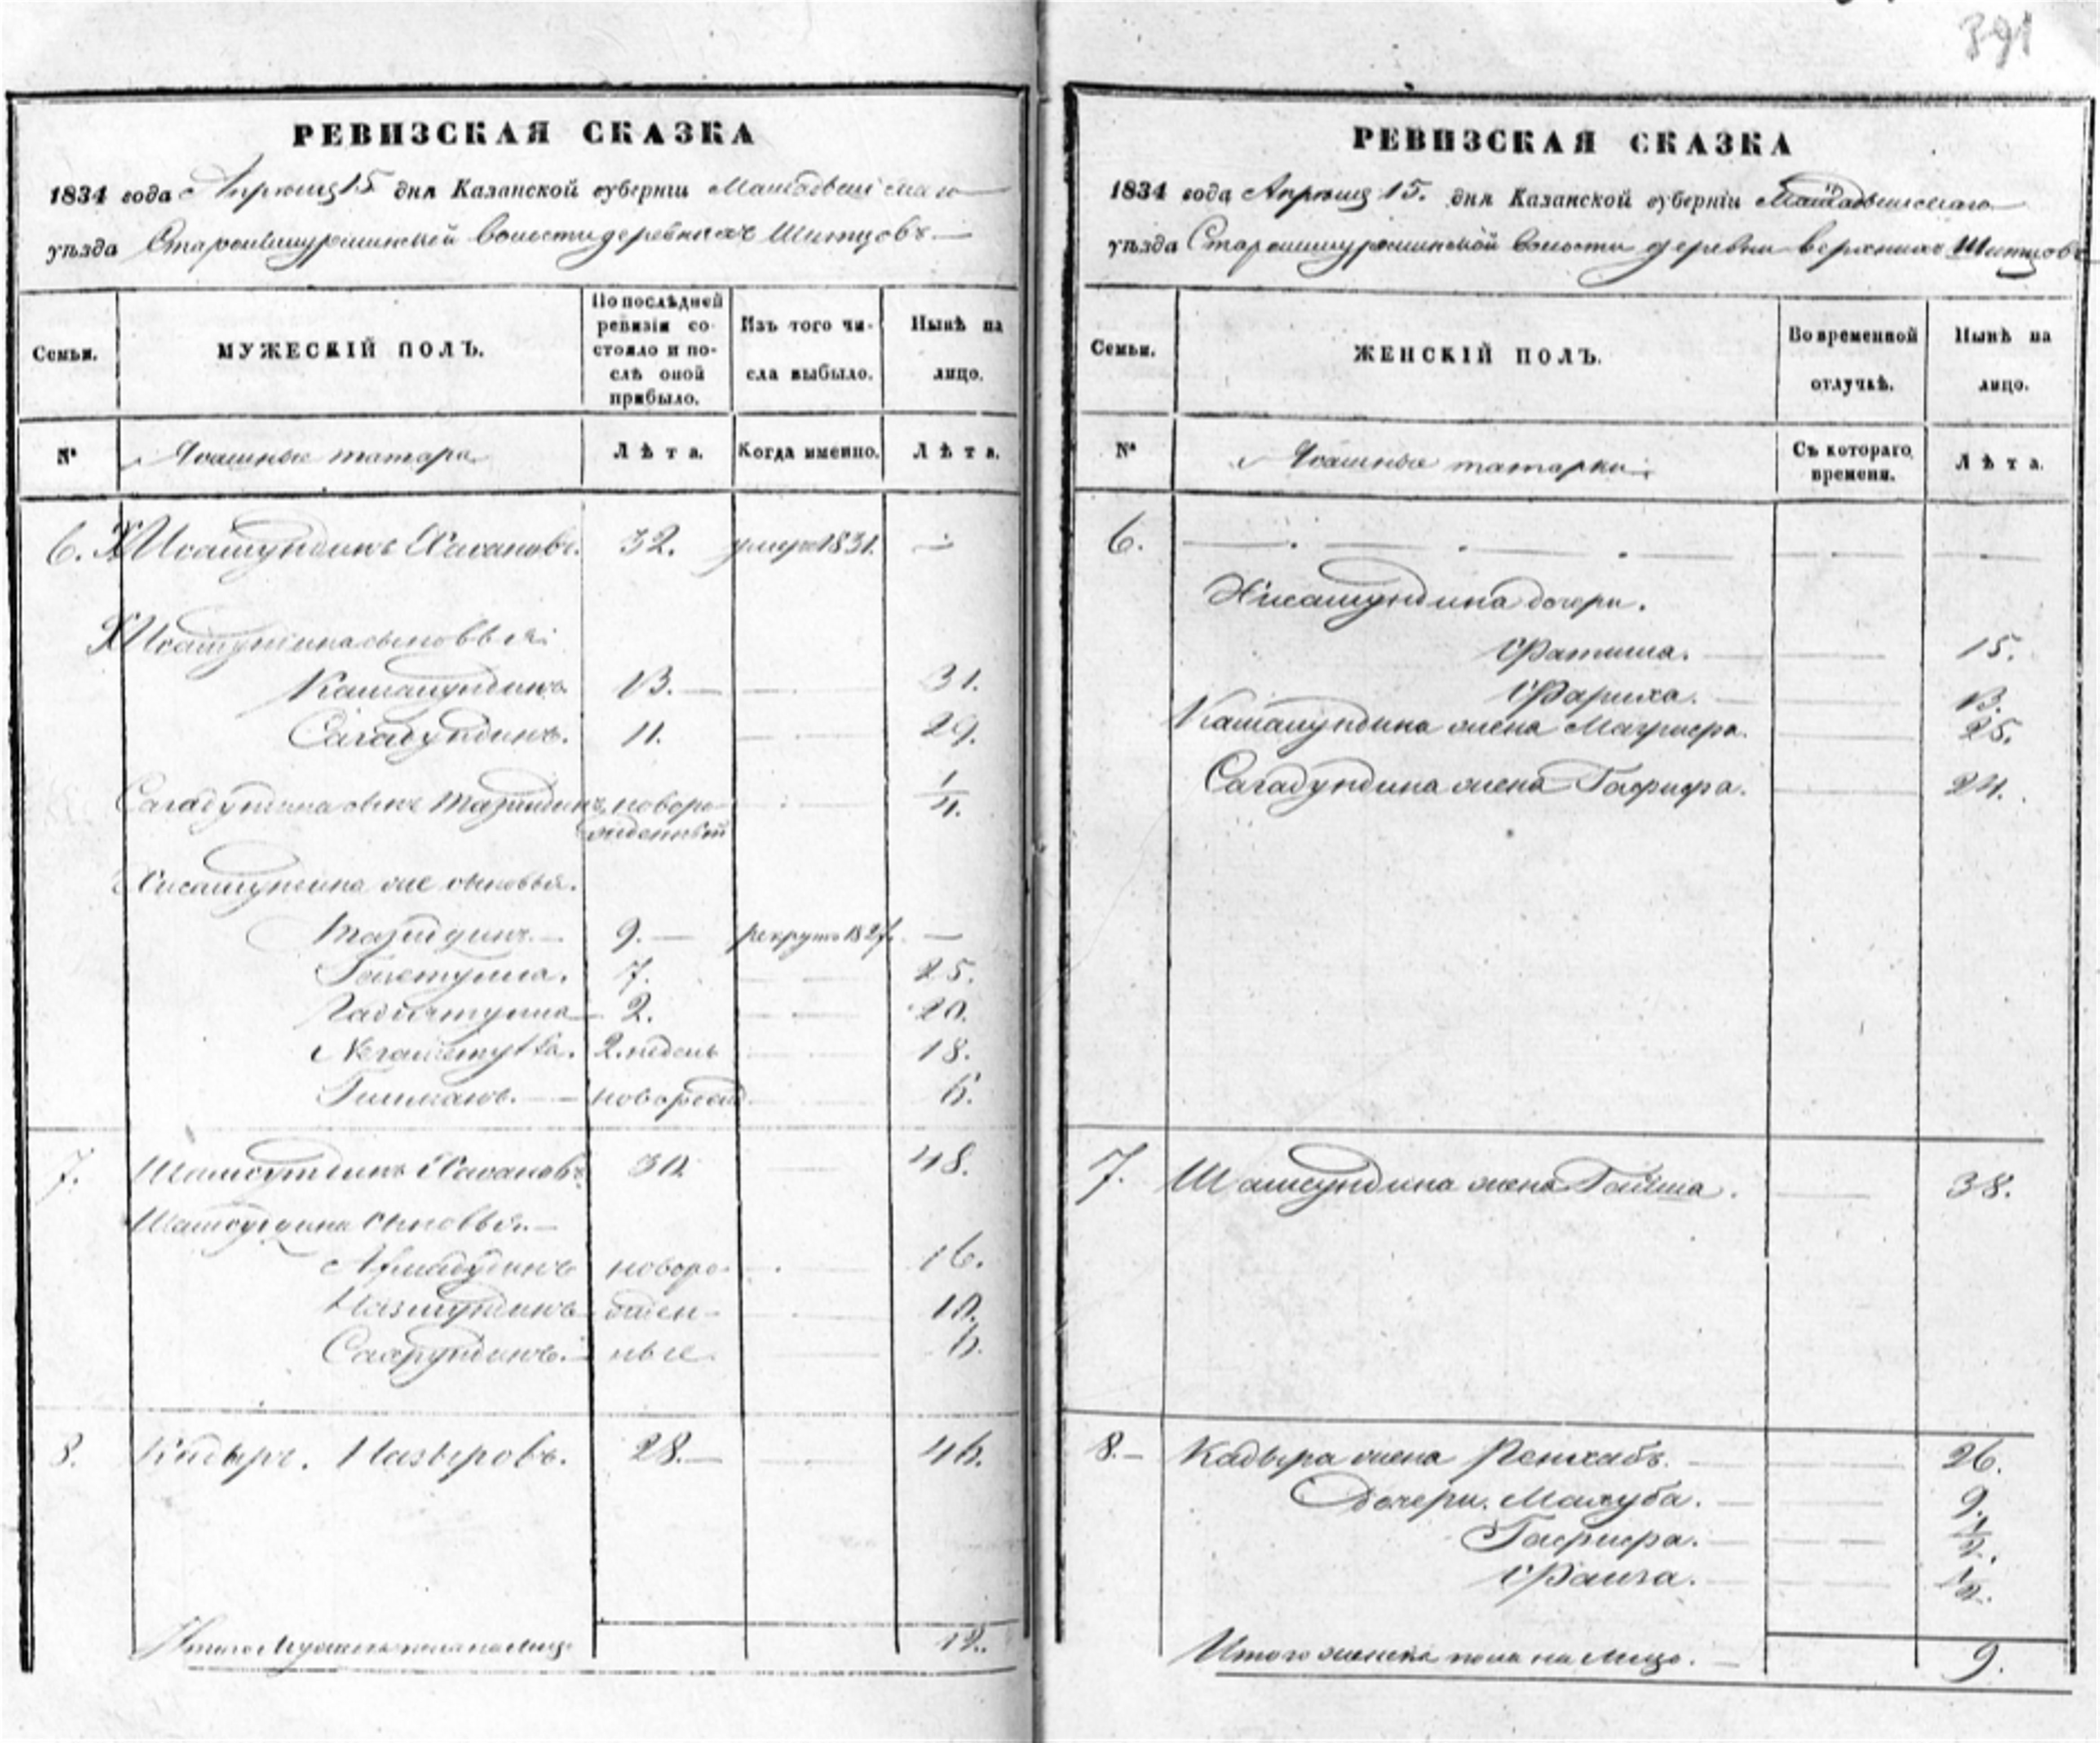 391
РЕВИЗСКАЯ СКАЗКА
1834 года Апреля 15 дня Казанской губерніи Мамадышскаго
уѣзда волости деревни Шитцовъ
Семьи.
МУЖЕСКІЙ ПОЛЪ.
По послѣдней ревизіи состояло и послѣ оной прибыло.
Изъ того числа выбыло.
Нынѣ на лицо.
№ Ясашные татара Лѣта. Когда именно. Лѣта.
6. Хисамутдинъ Хасановъ. 32. умеръ 1831. —
Хисамутдина сыновья:
Камалутдинъ 13. — 31.
Сагадутдинъ. 11. — 29.
Сагадутдина сынъ Тазитдинъ новоро- 1/4.
жденный
Хисамутдина же сыновья.
Тазитдинъ. — 9. — рекрутъ 1827. —
7. — 25.
2. — 20.
2. недель — 18.
новорожд — 6.
7. Шамсутдинъ Хасановъ. 30 — 48.
Шамсутдина сыновья. —
новоро- 16.
Назмутдинъ жден- 10.
ные
8. Кадыръ. Назыровъ. 28. — 46.
Итого Мужеска пола на Лицо 12.
РЕВИЗСКАЯ СКАЗКА
1834 года Апреля 15. дня Казанской губерніи Мамадышскаго
уѣзда волости деревни верхнихъ Шитцовъ
Семьи.
ЖЕНСКІЙ ПОЛЪ.
Во временной отлучкѣ.
Нынѣ на лицо.
№ Ясашные татарки. Съ котораго времени. Лѣта.
6.
Хисамутдина дочери.
Фатима. — 15.
Фариха. — 13.
Камалутдина жена Магрифа. — 25.
Сагадутдина жена Гафифа. — 24.
7. Шамсутдина жена Гайша. — 38.
8. — Кадыра жена — 26.
Дочери. Махуба. — 9.
Гафифа. — 1/2.
Фаига. — 1/2.
Итого женска пола на Лицо. — 9.